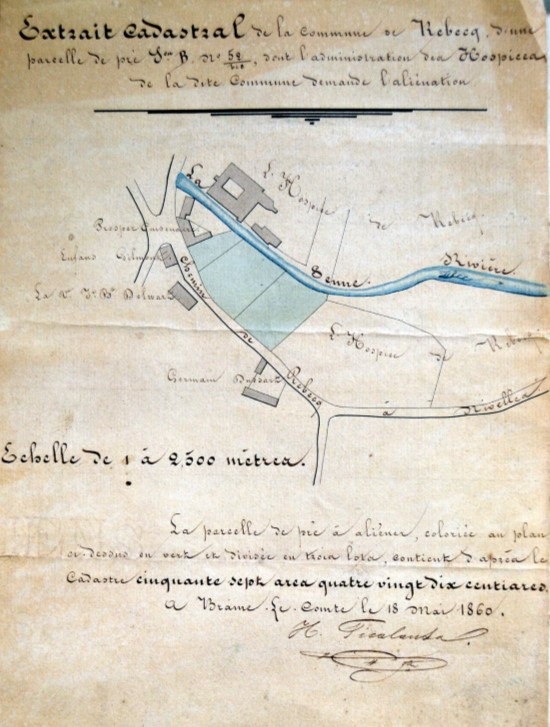 Extrait Cadastral de la Commune de Rebecq, d'une
parcelle de pré Son B, No 52/210, dont l'administration des Hospices
de la dite Commune demande l'aliénation
La Senne Rivière
L'Hospice de Rebecq
Prosper
Enfans
La Ve Jn Bte Delwart
Chemin de Rebecq à Nivelles
L'Hospice de Rebecq
Germain
Echelle de 1 à 2,500 mètres.
La parcelle de pré à aliéner, coloriée au plan
ci-dessus en vert et divisée en trois lots, contient d'après le
Cadastre cinquante sept ares quatre vingt dix centiares.
A Braine-Le-Comte le 18 Mai 1860.